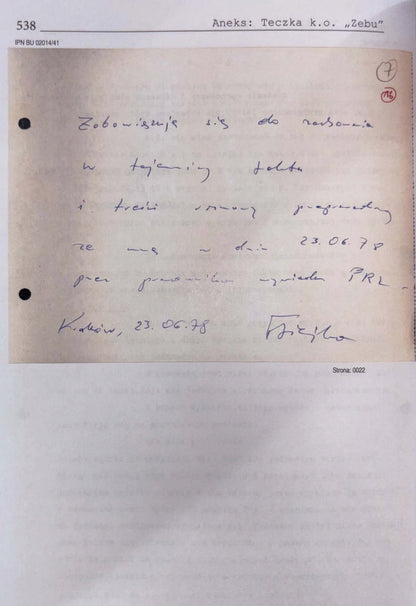 538
Aneks: Teczka k.o. „Zebu"
IPN BU 02014/41
7
Zobowiązuję się do zachowania
w tajemnicy faktu
i treści rozmowy przeprowadzonej
ze mną w dniu 23.06.78
przez pracownika wywiadu PRL.
Kraków, 23.06.78
Strona: 0022